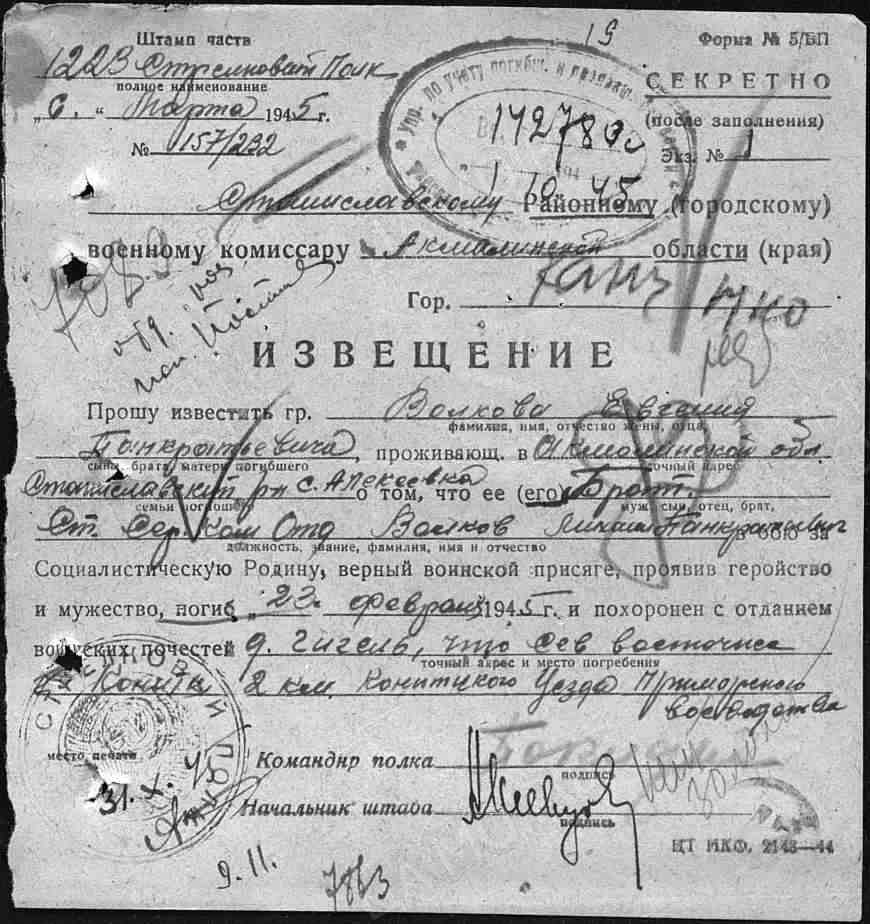 19
Штамп части
Форма № 5/БП
1223 Стрелковый Полк
полное наименование
СЕКРЕТНО
„6.“ Марта 1945 г.
(после заполнения)
№ 157/232
Экз. № 1
Упр. по учету погибш. и
142783
1 10 45
Станиславскому Районному (городскому)
военному комиссару Акмалинской области (края)
Гор.
ИЗВЕЩЕНИЕ
Прошу известить гр. Волкова Евгения
фамилия, имя, отчество жены, отца,
Панкратьевича, проживающ. в Акмолинской обл
сына, брата, матери погибшего
точный адрес
Станиславский р-н с. Алексеевка о том, что ее (его) Брат
семьи погибшего
муж, сын, отец, брат,
Ст. Сер. Ком Отд Волков Михаил Панкратьевич в бою за
должность, звание, фамилия, имя и отчество
Социалистическую Родину, верный воинской присяге, проявив геройство
и мужество, погиб „23. февраля 1945 г. и похоронен с отданием
воинских почестей д. Гигель, что сев восточнее
точный адрес и место погребения
2 км. Конитцкого Уезда Приморского
воеводства
СТРЕЛКОВЫЙ ПОЛК
место печати
Командир полка
подпись
31. X. 45
Начальник штаба
подпись
ЦТ НКО. 2143—44
9.11.
7863